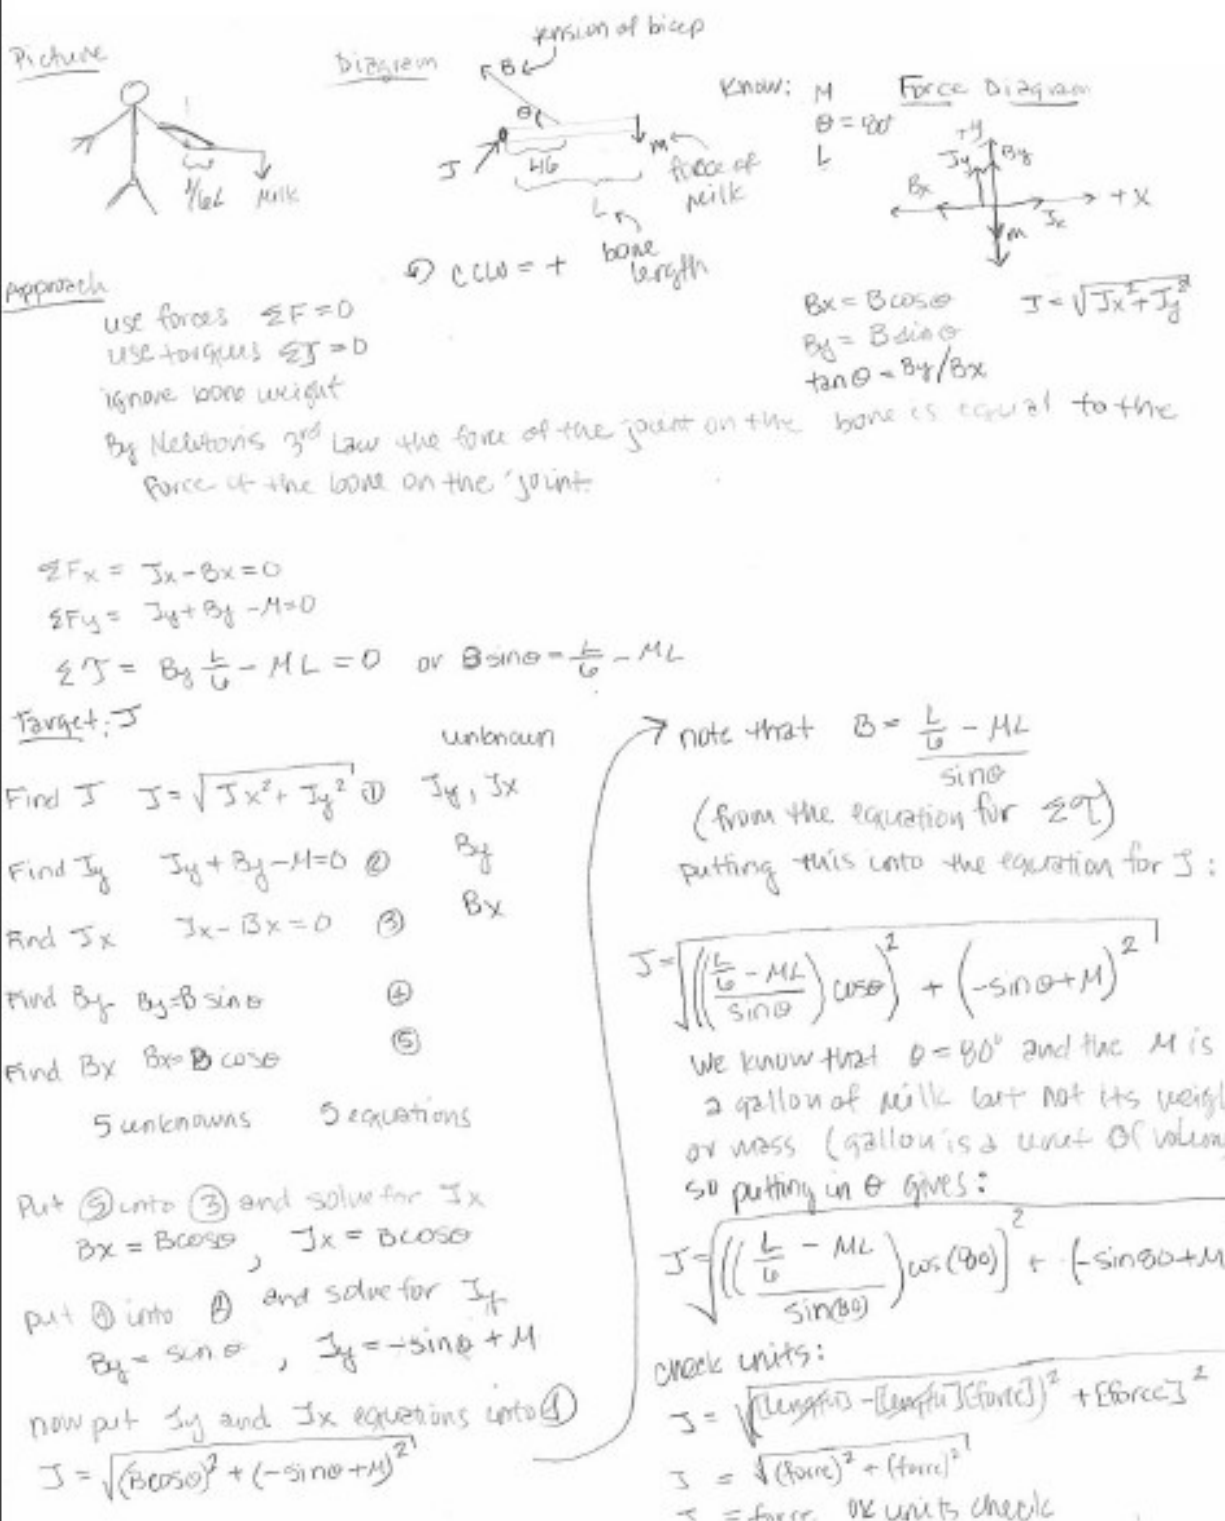 Picture
Diagram
tension of bicep
B
θ
J
L/6
L
m
force of
milk
bone
length
CCW = +
1/6L
Milk
Know: M
θ = 80°
L
Force Diagram
+y
Jy
By
Bx
Jx
+X
m
Bx = Bcosθ
By = Bsinθ
tanθ = By/Bx
J = √Jx² + Jy²
Approach
use forces ΣF = 0
use torques Στ = 0
ignore bone weight
By Newton's 3rd Law the force of the joint on the bone is equal to the
force of the bone on the joint.
ΣFx = Jx - Bx = 0
ΣFy = Jy + By - M = 0
Στ = By L/6 - ML = 0 or Bsinθ = L/6 - ML
Target: J
unknown
Find J J = √Jx² + Jy² ① Jy, Jx
Find Jy Jy + By - M = 0 ② By
Find Jx Jx - Bx = 0 ③ Bx
Find By By = B sinθ ④
Find Bx Bx = B cosθ ⑤
5 unknowns 5 equations
Put ⑤ into ③ and solve for Jx
Bx = Bcosθ, Jx = Bcosθ
put ④ into ② and solve for Jy
By = sinθ, Jy = -sinθ + M
now put Jy and Jx equations into ①
J = √(Bcosθ)² + (-sinθ + M)²
note that B = (L/6 - ML)/sinθ
(from the equation for Στ)
putting this into the equation for J:
J = √(((L/6 - ML)/sinθ) cosθ)² + (-sinθ + M)²
We know that θ = 80° and the M is
a gallon of milk but not its
or mass (gallon is a unit of
so putting in θ gives:
J = √(((L/6 - ML)/sin(80)) cos(80))² + (-sin80 + M
check units:
J = √([length] - [length][force])² + [force]²
J = √(force)² + (force)²
J = force OK units check